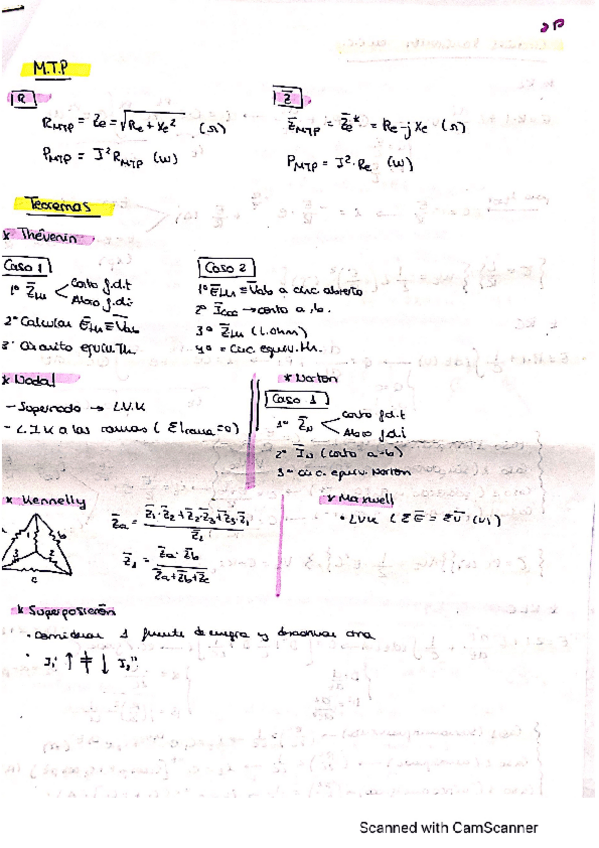 2P
M.T.P
R
R_MTP = Z_e = √(R_e + X_e²) (Ω)
P_MTP = I² R_MTP (W)
Z̄
Z̄_MTP = Z̄_e* = R_e - j X_e (Ω)
P_MTP = I² · R_e (W)
Teoremas
* Thévenin
Caso 1
1º Z̄_TH < Corto f.d.t
Abro f.d.i
2º Calcular Ē_TH ≡ V̄_ab
3º Circuito equiv. Th.
Caso 2
1º Ē_TH ≡ V_ab a circ. abierto
2º Ī_cc → corto a, b.
3º Z̄_TH (L.ohm)
4º = Circ. equiv. Th.
* Nodal
- Supernodo → L.V.K
- L.I.K a las ramas ( Σ I rama = 0)
* Norton
Caso 1
1º Z̄_N < Corto f.d.t
Abro f.d.i
2º Ī_N (corto a-b)
3º circ. equiv. Norton
* Kennelly
a b c 1 2 3
Z̄a = (Z̄1·Z̄2 + Z̄2·Z̄3 + Z̄3·Z̄1) / Z̄2
Z̄1 = (Z̄a·Z̄b) / (Z̄a + Z̄b + Z̄c)
* Maxwell
• LVK ( Σ Ē = Σ Ū (V)
* Superposición
• Considerar 1 fuente de energía y desactivar otra
• I₁' ↑ ≠ ↓ I₁''
Scanned with CamScanner